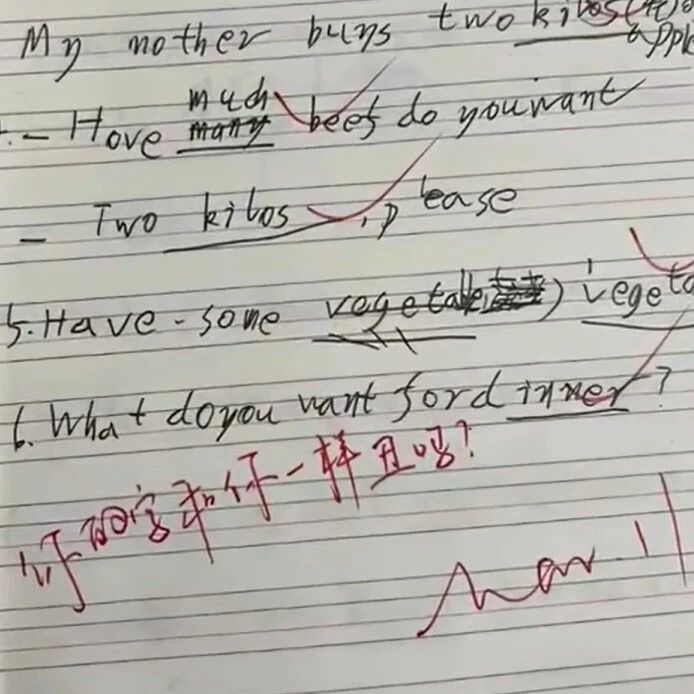 My mother buys two kilos
much
- Hove many beef do you want
- Two kilos, please
5. Have - some vegetable) vegeta
6. What do you want for dinner?
你确定和你一样丑吗?
Mar. 11